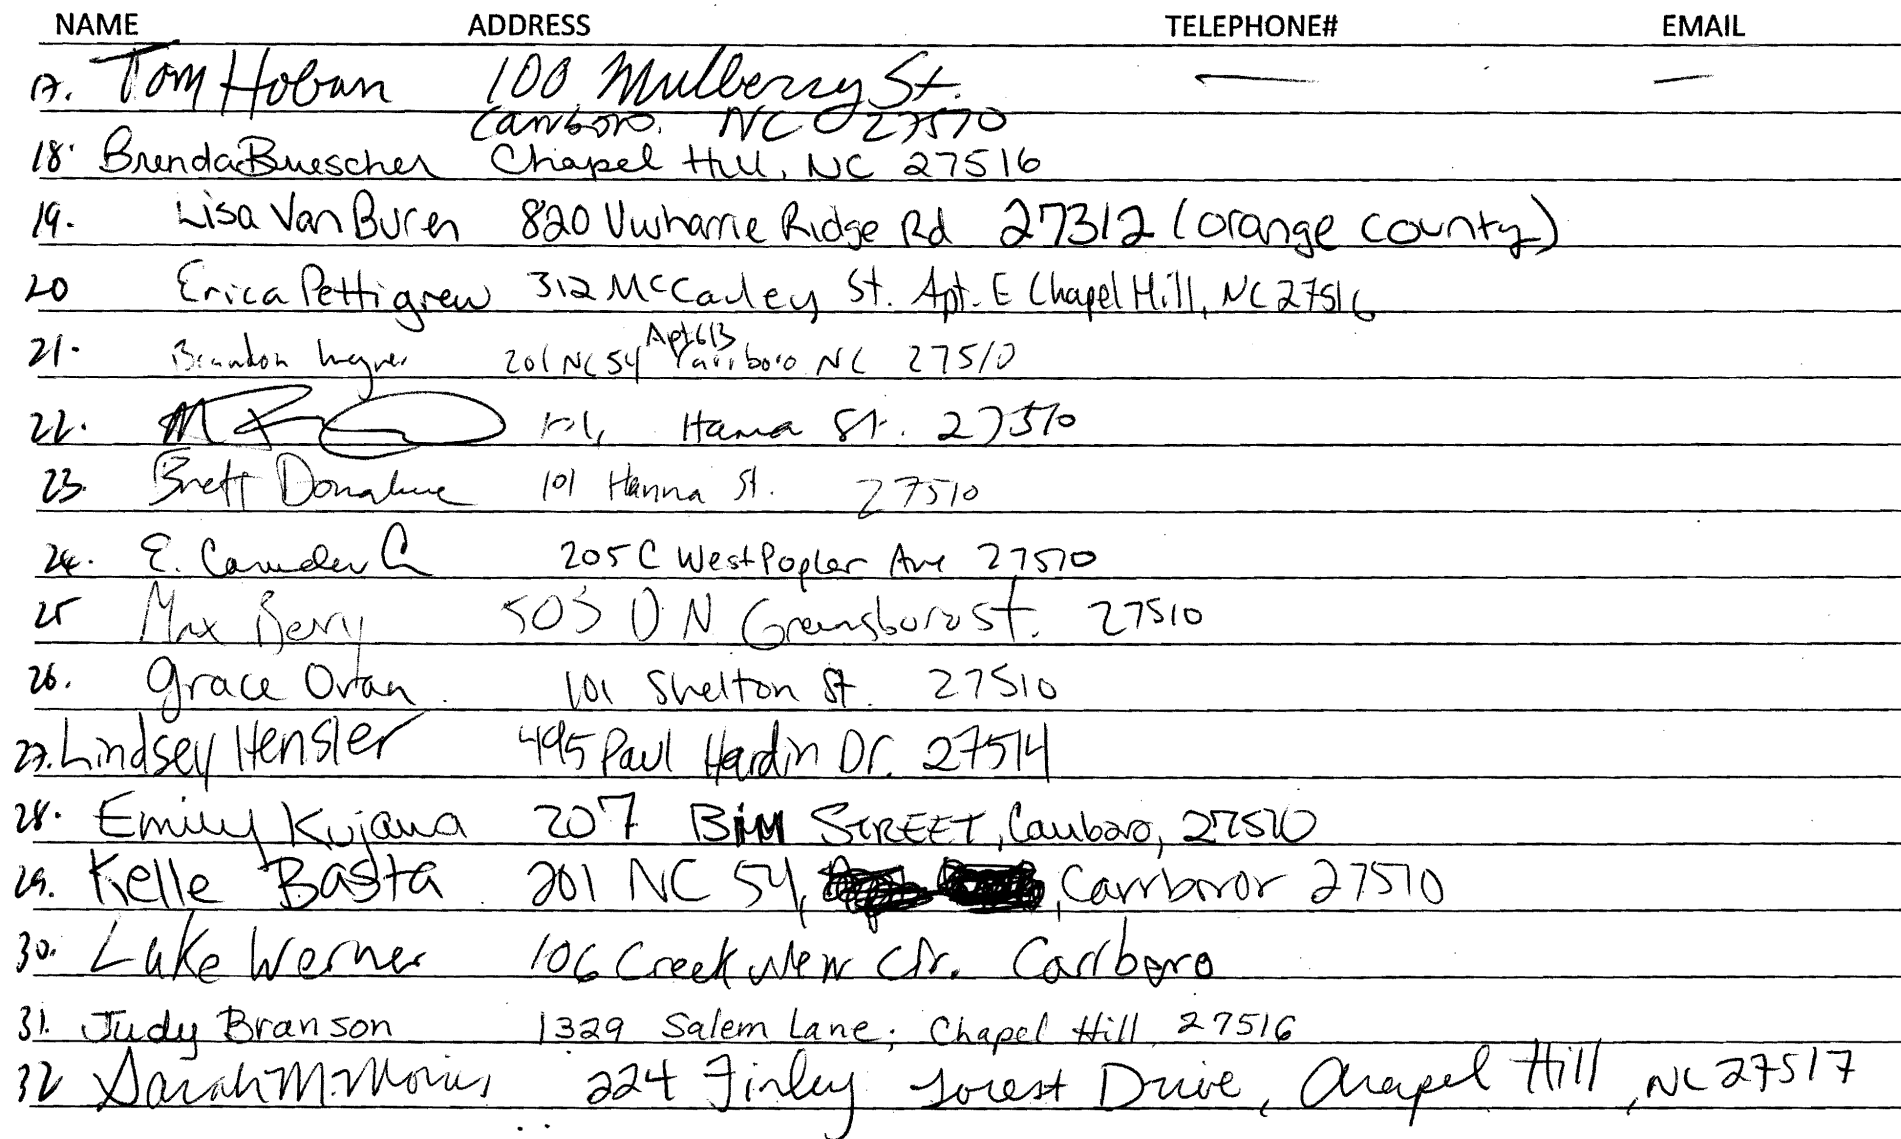 NAME ADDRESS TELEPHONE# EMAIL
17. Tom Hoban 100 Mulberry St. — —
Carrboro. NC 27510
18. Brenda Buescher Chapel Hill, NC 27516
19. Lisa Van Buren 820 Uwharrie Ridge Rd 27312 (orange county)
20 Erica Pettigrew 312 McCauley St. Apt. E Chapel Hill, NC 27516
21. Brandon 201 NC 54 Apt 613 Carrboro NC 27510
22. St. 27510
23. Brett Donahue 101 Hanna St. 27510
24. E. Camden 205 C West Poplar Ave 27510
25 Max Berry 505 D N Greensboro St. 27510
26. Grace 101 Shelton St. 27510
27. Lindsey Hensler 495 Paul Hardin Dr. 27514
28. Emily Kujawa 207 BIM STREET, Carrboro, 27510
29. Kelle Basta 201 NC 54, , Carrboror 27510
30. Luke Werner 106 Creekview Cir. Carrboro
31. Judy Branson 1329 Salem Lane; Chapel Hill 27516
32 Sarah M. Morris 224 Finley Forest Drive, Chapel Hill, NC 27517